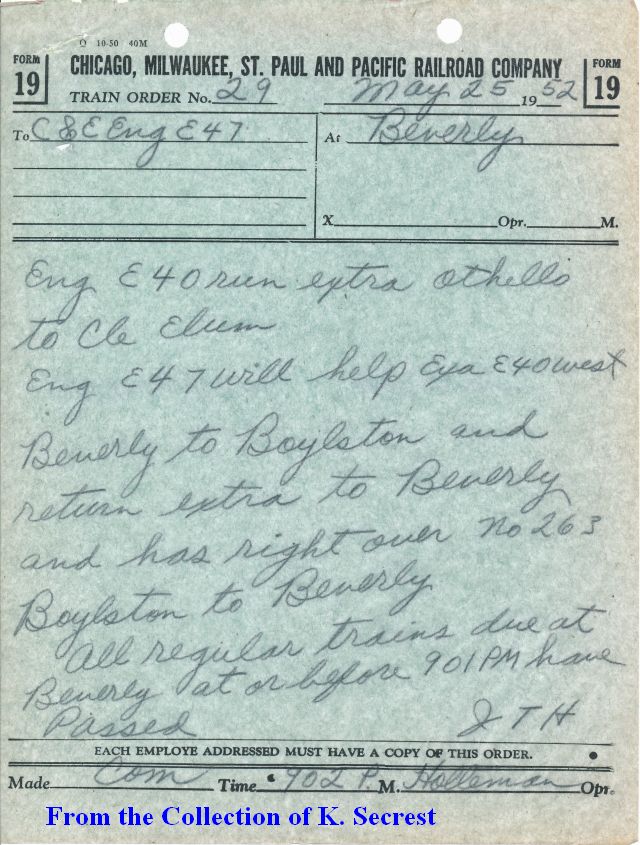 O 10-50 40M
FORM 19
CHICAGO, MILWAUKEE, ST. PAUL AND PACIFIC RAILROAD COMPANY
FORM 19
TRAIN ORDER No. 29 May 25 1952
To C&E Eng E47 At Beverly
X Opr. M.
Eng E40 run extra Othello
to Cle Elum
Eng E47 will help Exa E40 west
Beverly to Boylston and
return extra to Beverly
and has right over No 263
Boylston to Beverly
All regular trains due at
Beverly at or before 901 PM have
Passed JTH
EACH EMPLOYE ADDRESSED MUST HAVE A COPY OF THIS ORDER.
Made Com Time 902 P. M. Holleman Opr.
From the Collection of K. Secrest